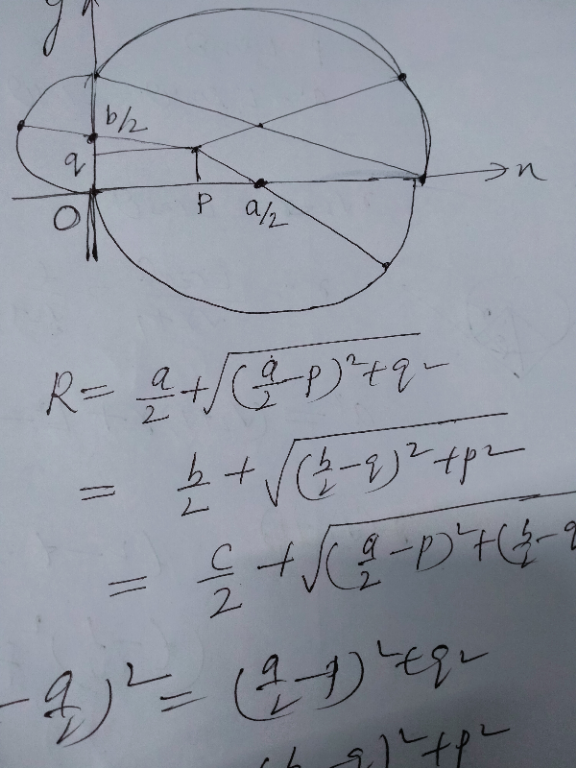 y
b/2
q
x
O
P
a/2
R = a/2 + √((a/2 - p)² + q²
= b/2 + √((b/2 - q)² + p²
= c/2 + √((a/2 - p)² + (b/2 - q
- a/2)² = (a/2 - p)² + q²
(b/2 - q)² + p²